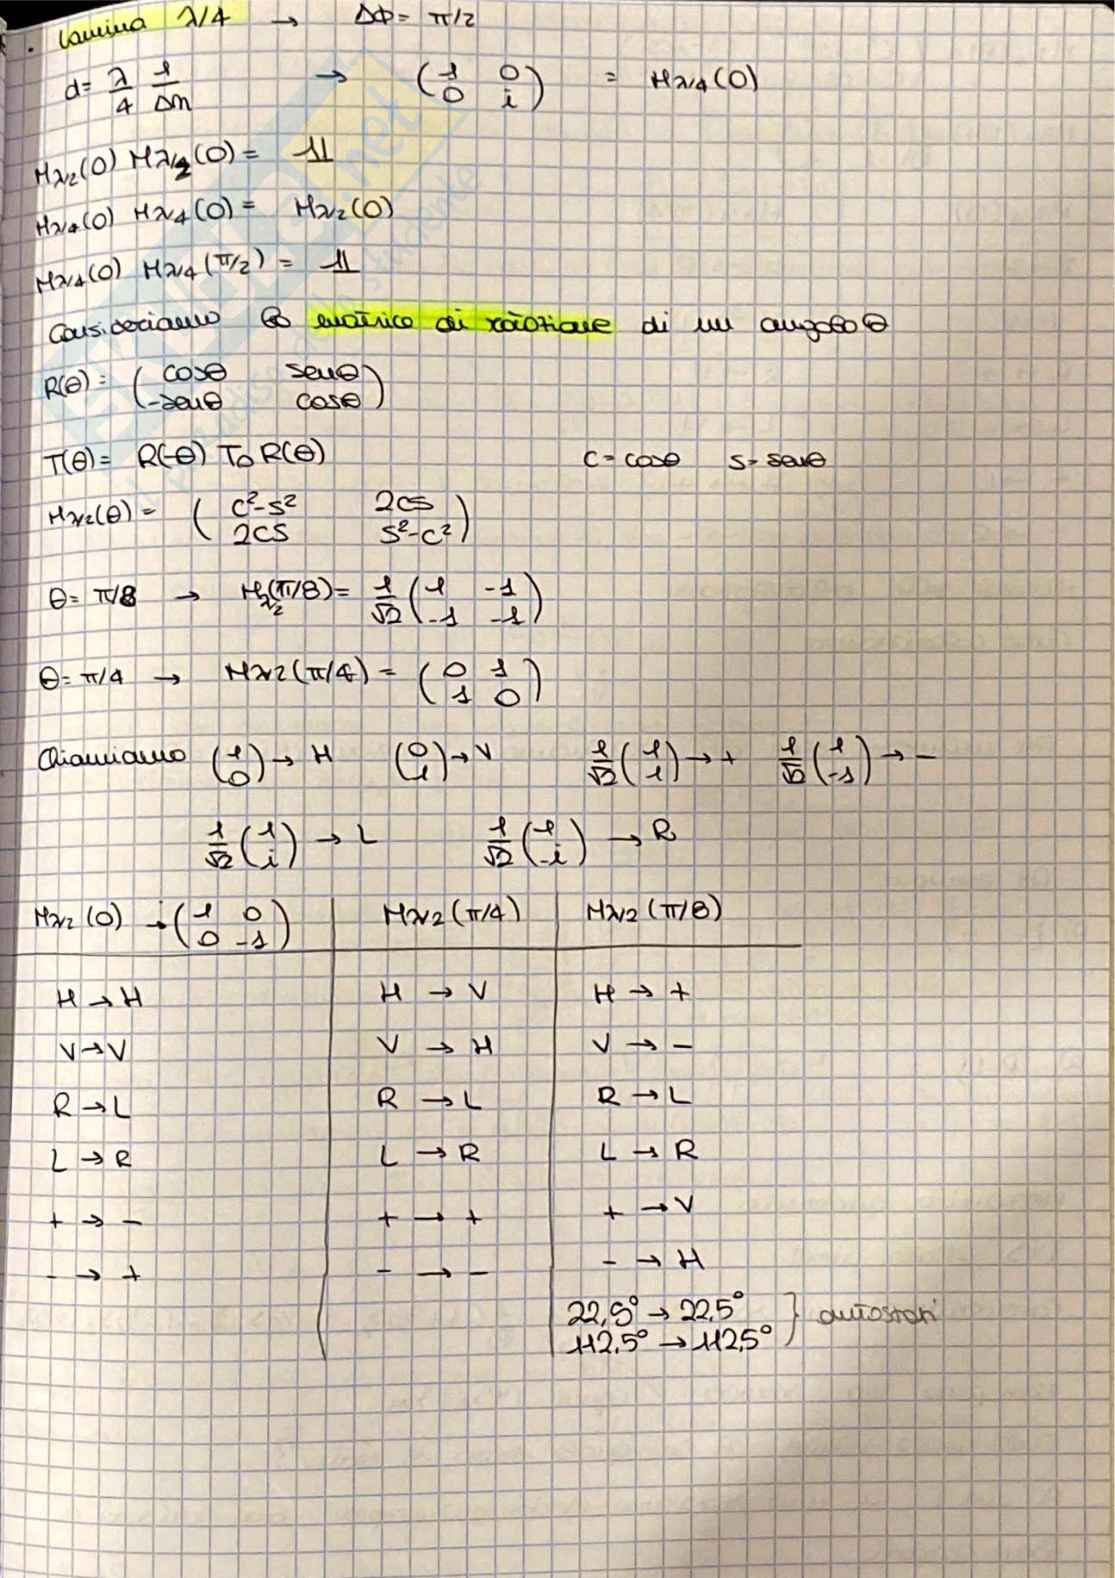 . Lamina λ/4 → ΔΦ = π/2
d = λ/4 1/Δn → (1 0 / 0 i) = Hλ/4(0)
Hλ/2(0) Hλ/2(0) = 𝟙
Hλ/4(0) Hλ/4(0) = Hλ/2(0)
Hλ/4(0) Hλ/4(π/2) = 𝟙
Consideriamo la matrice di rotazione di un angolo θ
R(θ) = (cosθ senθ / -senθ cosθ)
T(θ) = R(-θ) T0 R(θ) C = cosθ S = senθ
Hλ/2(θ) = (c²-s² 2cs / 2cs s²-c²)
θ = π/8 → Hλ/2(π/8) = 1/√2 (1 -1 / -1 -1)
θ = π/4 → Hλ/2(π/4) = (0 1 / 1 0)
Chiamiamo (1 / 0) → H (0 / 1) → V 1/√2 (1 / 1) → + 1/√2 (1 / -1) → -
1/√2 (1 / i) → L 1/√2 (1 / -i) → R
Hλ/2(0) → (1 0 / 0 -1) Hλ/2(π/4) Hλ/2(π/8)
H → H H → V H → +
V → V V → H V → -
R → L R → L R → L
L → R L → R L → R
+ → - + → + + → V
- → + - → - - → H
22,5° → 22,5° } autostati
112,5° → 112,5°